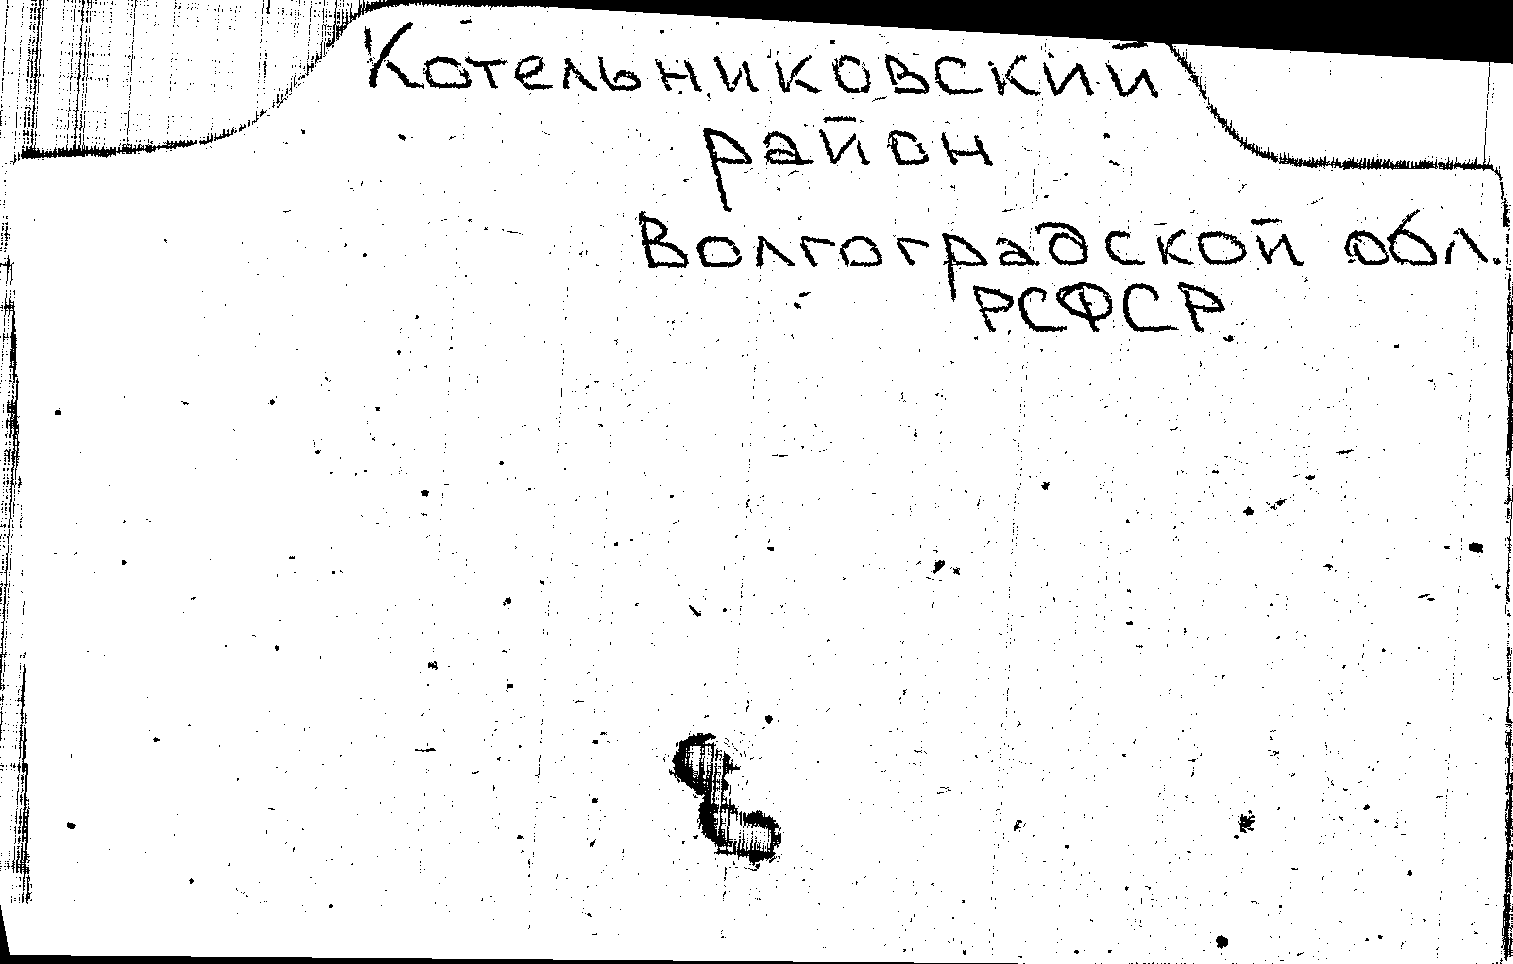 Котельниковский
район
Волгоградской обл.
РСФСР